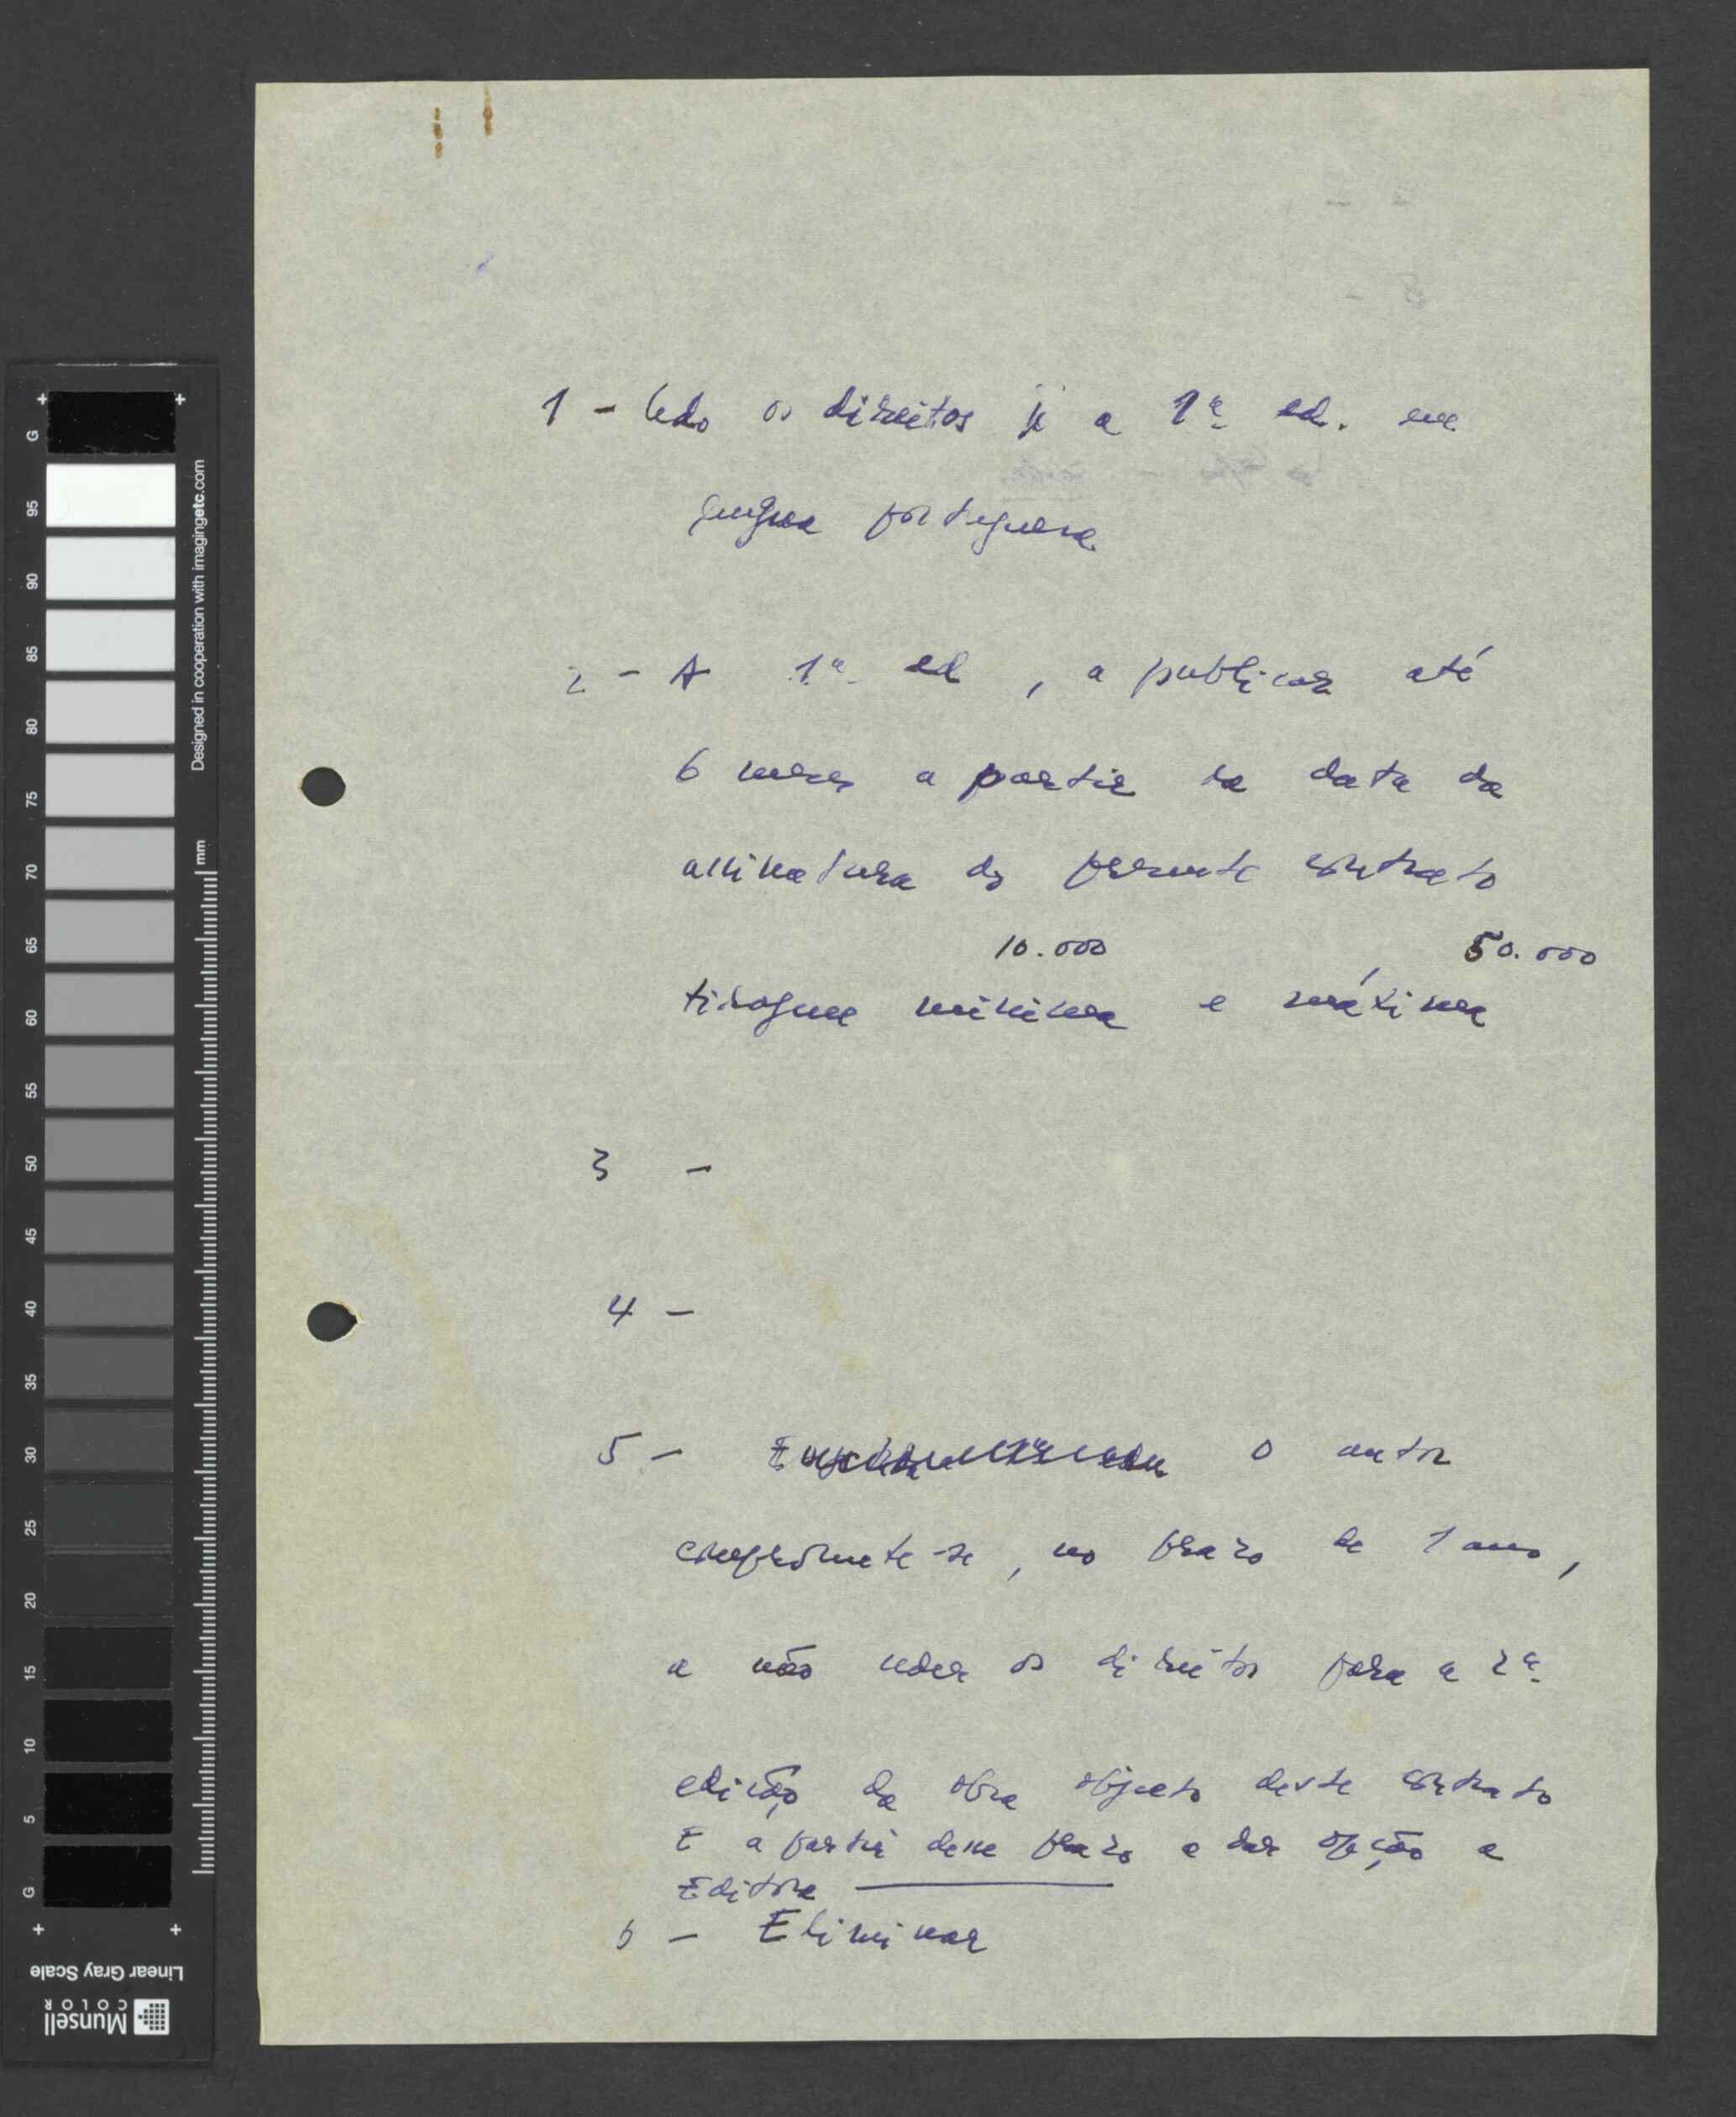 1 - Cedo os direitos p/ a 1ª ed. em
língua portuguesa
2 - A 1ª ed , a publicar até
6 meses a partir da data da
assinatura do presente contrato
10.000 50.000
tiragem minima e máxima
3 -
4 -
5 - O autor
compromete-se, no prazo de 1 ano,
a não ceder os direitos para a 2ª
edição da obra objecto deste contrato
E a partir desse prazo a dar opção a
Editora
6 - Eliminar
G 95 90 85 80 75 70 65 60 55 50 45 40 35 30 25 20 15 10 5 G
Designed in cooperation with imagingetc.com
mm
Linear Gray Scale
Munsell
COLOR